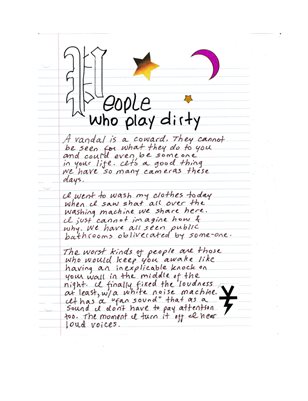 People
who play dirty
A vandal is a coward. They cannot
be seen for what they do to you
and could even be some one
in your life. It's a good thing
we have so many cameras these
days.
I went to wash my clothes today
when I saw shat all over the
washing machine we share here.
I just cannot imagine how &
why. We have all seen public
bathrooms obliverated by some-one.
The worst kinds of people are those
who would keep you awake like
having an inexplicable knock on
your wall in the middle of the
night. I finally fixed the loudness
at least, w/a white noise machine.
It has a "fan sound" that as a
sound I don't have to pay attention
too. The moment I turn it off I hear
loud voices.